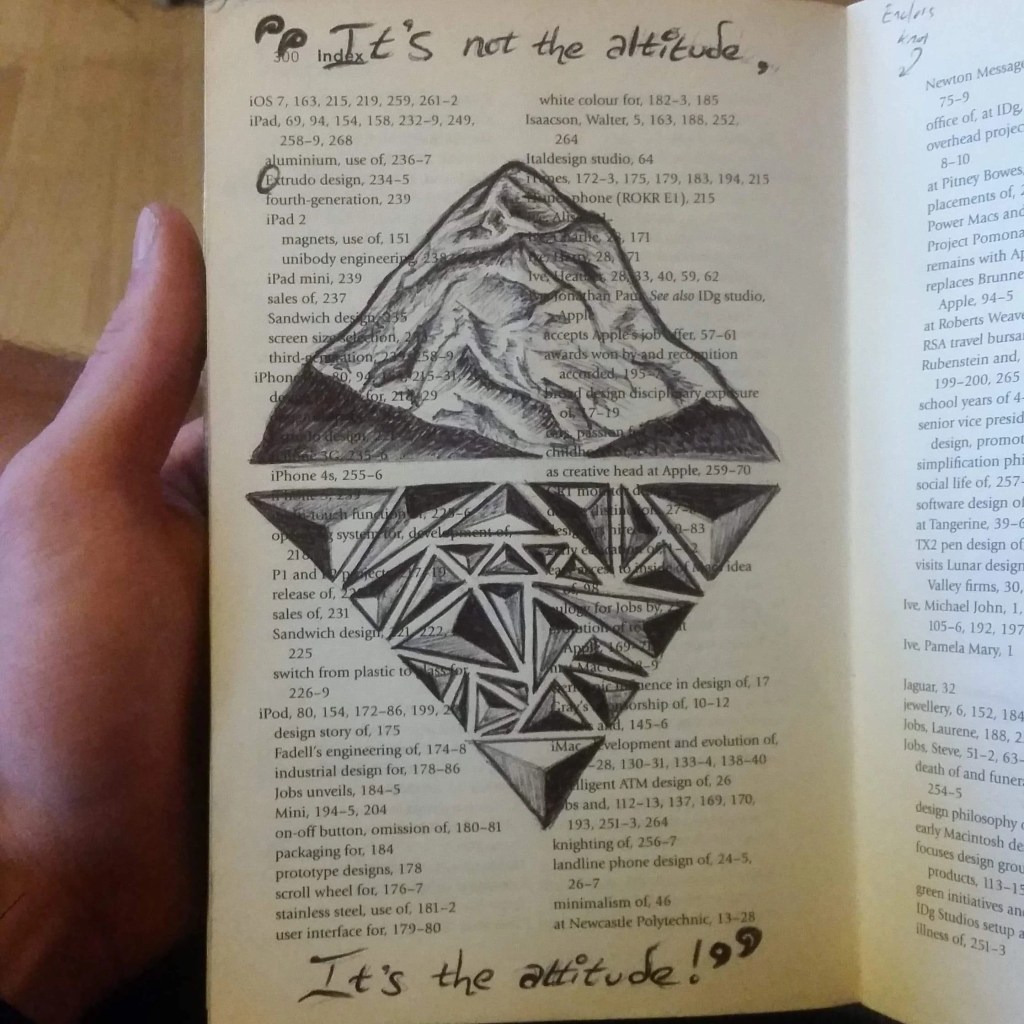 “It's not the altitude,
300 Index
iOS 7, 163, 215, 219, 259, 261–2
iPad, 69, 94, 154, 158, 232–9, 249,
258–9, 268
aluminium, use of, 236–7
Extrudo design, 234–5
fourth-generation, 239
iPad 2
magnets, use of, 151
unibody engineering, 238
iPad mini, 239
sales of, 237
Sandwich design, 235
screen size selection,
third-generation, 258–9
iPhone 80, 94, 215–31
for, 218–29
iPhone 4s, 255–6
operating system for, development of,
218
P1 and P2 projects, 217–19
release of,
sales of, 231
Sandwich design, 221, 222,
225
switch from plastic to glass for,
226–9
iPod, 80, 154, 172–86, 199,
design story of, 175
Fadell's engineering of, 174–8
industrial design for, 178–86
Jobs unveils, 184–5
Mini, 194–5, 204
on-off button, omission of, 180–81
packaging for, 184
prototype designs, 178
scroll wheel for, 176–7
stainless steel, use of, 181–2
user interface for, 179–80
white colour for, 182–3, 185
Isaacson, Walter, 5, 163, 188, 252,
264
Italdesign studio, 64
iTunes, 172–3, 175, 179, 183, 194, 215
iTunes phone (ROKR E1), 215
Ive,
Ive, Charlie, 171
Ive, Harry, 28, 171
Ive, Heather, 28, 33, 40, 59, 62
Ive, Jonathan Paul See also IDg studio,
Apple
accepts Apple's job offer, 57–61
awards won by and recognition
accorded, 195–
broad design disciplinary exposure
of, 17–19
passion
childhood
as creative head at Apple, 259–70
CRT monitor
distinction, 27–
80–83
early education of,
to inside of Mac idea
of, 98
eulogy for Jobs by,
evolution of
Apple, 169–
iMac
influence in design of, 17
Gray's sponsorship of, 10–12
and, 145–6
iMac development and evolution of,
–28, 130–31, 133–4, 138–40
Intelligent ATM design of, 26
Jobs and, 112–13, 137, 169, 170,
193, 251–3, 264
knighting of, 256–7
landline phone design of, 24–5,
26–7
minimalism of, 46
at Newcastle Polytechnic, 13–28
It's the attitude!”
Newton Message
75–9
office of, at IDg,
overhead projec
8–10
at Pitney Bowes,
placements of, 2
Power Macs and
Project Pomona
remains with Ap
replaces Brunne
Apple, 94–5
at Roberts Weave
RSA travel bursa
Rubenstein and,
199–200, 265
school years of 4–
senior vice presid
design, promot
simplification phi
social life of, 257–
software design of
at Tangerine, 39–6
TX2 pen design of
visits Lunar design
Valley firms, 30,
Ive, Michael John, 1,
105–6, 192, 197
Ive, Pamela Mary, 1
Jaguar, 32
jewellery, 6, 152, 184
Jobs, Laurene, 188, 2
Jobs, Steve, 51–2, 63–
death of and funer
254–5
design philosophy o
early Macintosh de
focuses design grou
products, 113–15
green initiatives and
IDg Studios setup a
illness of, 251–3